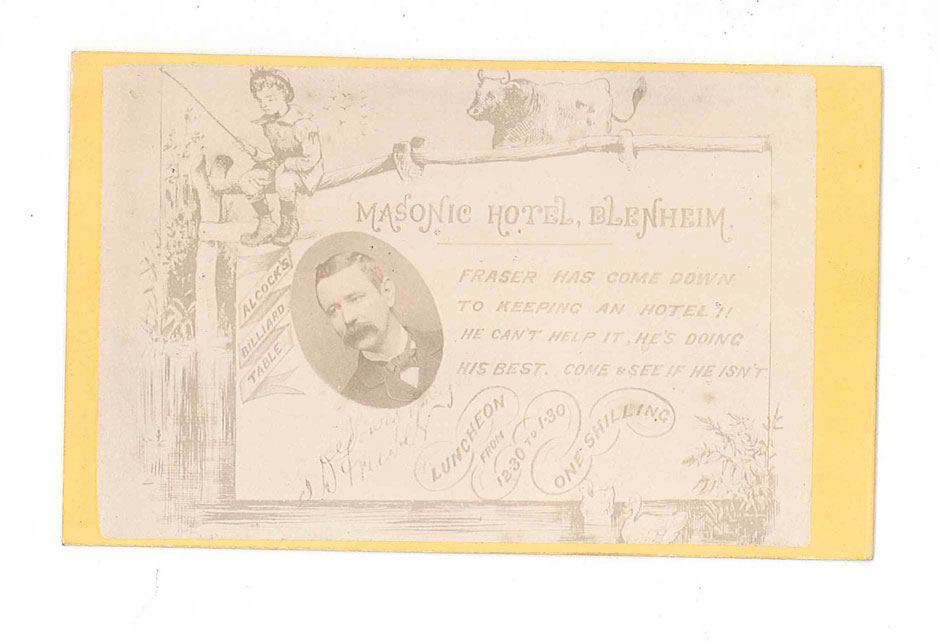 MASONIC HOTEL, BLENHEIM.
ALCOCK'S
BILLIARD
TABLE
FRASER HAS COME DOWN
TO KEEPING AN HOTEL?!!
HE CAN'T HELP IT, HE'S DOING
HIS BEST. COME & SEE IF HE ISN'T
LUNCHEON
FROM
12.30 TO 1.30
ONE SHILLING